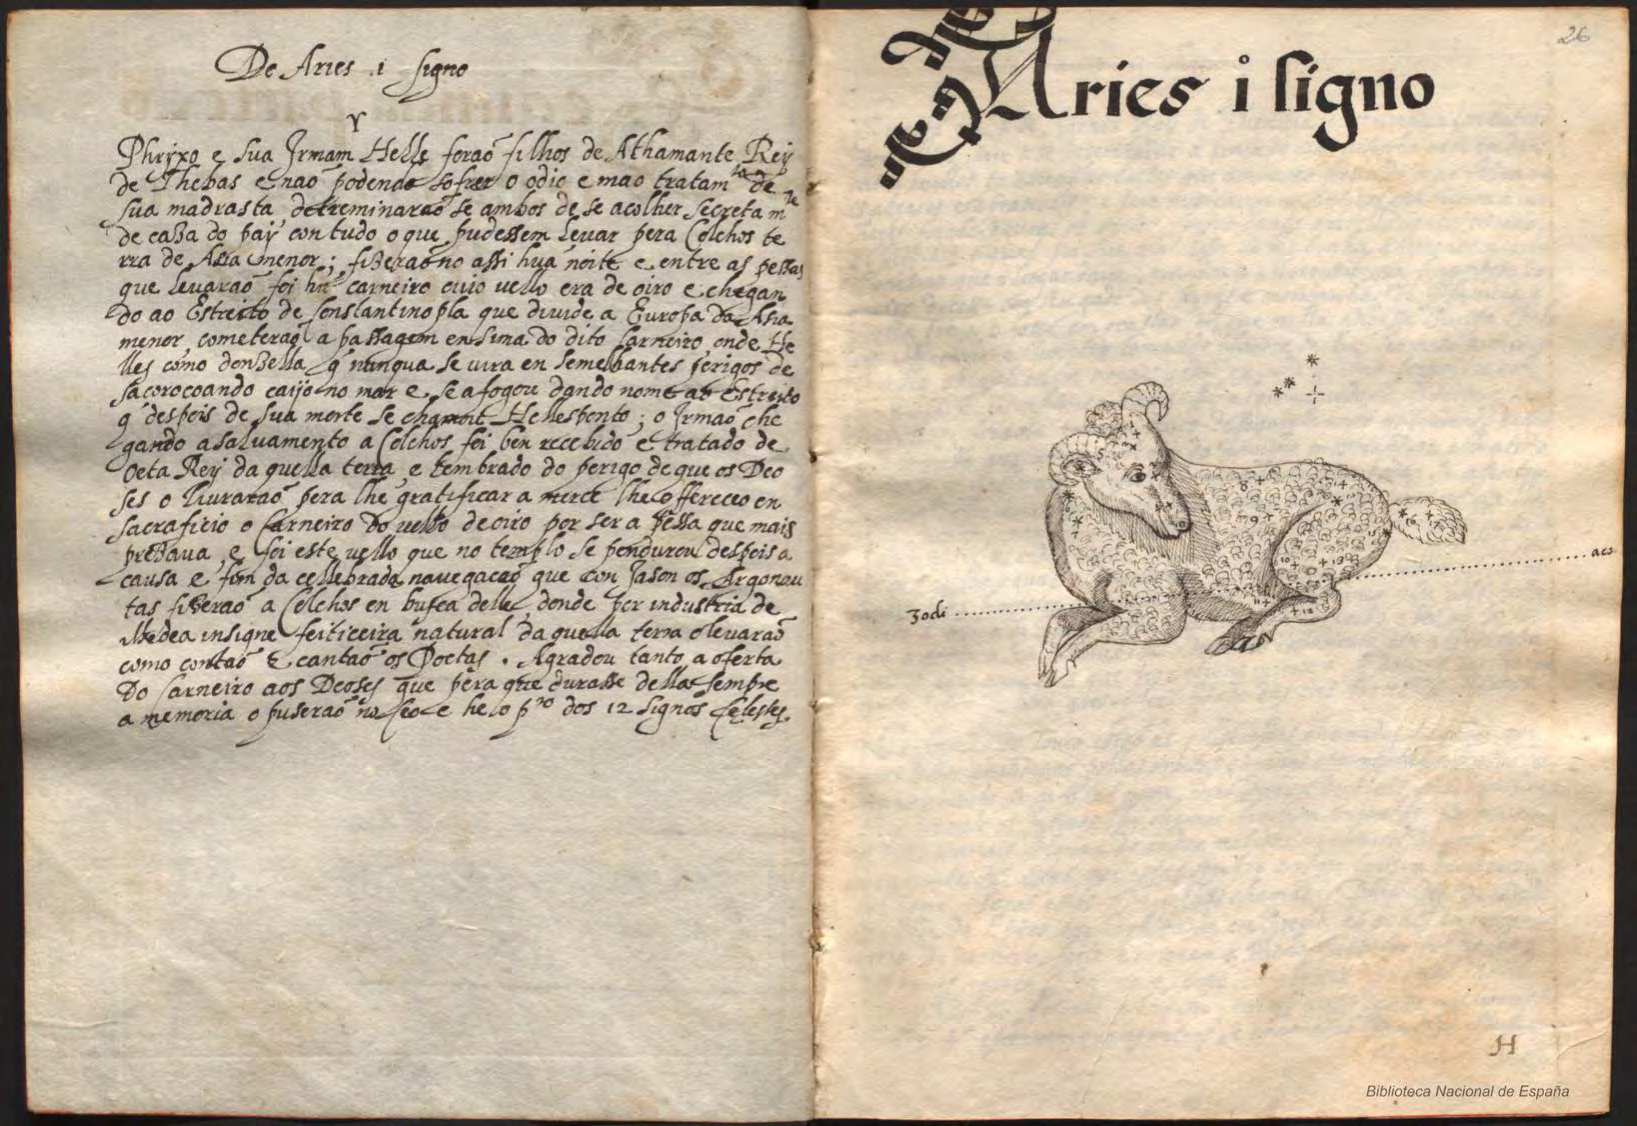 De Aries .i signo
♈
Phryxo e sua Jrmam Helle foraõ filhos de Athamante Rey
de Thebas e naõ podendo sofrer o odio e mao tratam.to de
sua madrasta, detreminaraõ se ambos de se acolher secretam.te
de caza do pay con tudo o que pudessem levar pera Colchos te
rra de Asia menor; fizeraõ no assi hũa noite e entre as pessas
que levaraõ foi hũ carneiro cuio vello era de oiro e chegan
do ao Estreito de Constantinopla que divide a Europa da Asia
menor, cometeraõ a passagem en sima do dito Carneiro onde He
lles como donzella q̃ nunqua se vira en semelhantes perigos de
sacorocoando caijo no mar e se afogou dando nome ao Estreito
q̃ despois de sua morte se chamou Hellesponto; o Jrmaõ che
gando a salvamento a Colchos foi ben recebido e tratado de
Oeta Rey da quella terra e lembrado do perigo de que os Deo
ses o livraraõ pera lhe gratificar a merce lhe offereceo en
sacraficio o Carneiro do vello de oiro por ser a pessa que mais
prezava, e foi este vello que no templo se pendurou despois a
causa e fim da cellebrada navegacaõ que con Jason os Argonau
tas fizeraõ a Colchos en busca delle, donde per industria de
Medea insigne feiticeira natural da quella terra o levaraõ
como contaõ e cantaõ os Poetas. Agradou tanto a oferta
do Carneiro aos Deoses que pera que durasse della sempre
a memoria o puseraõ no Ceo e he o p.ro dos 12 signos Celestes.
26
Aries i signo
Zodi
aco
H
Biblioteca Nacional de España